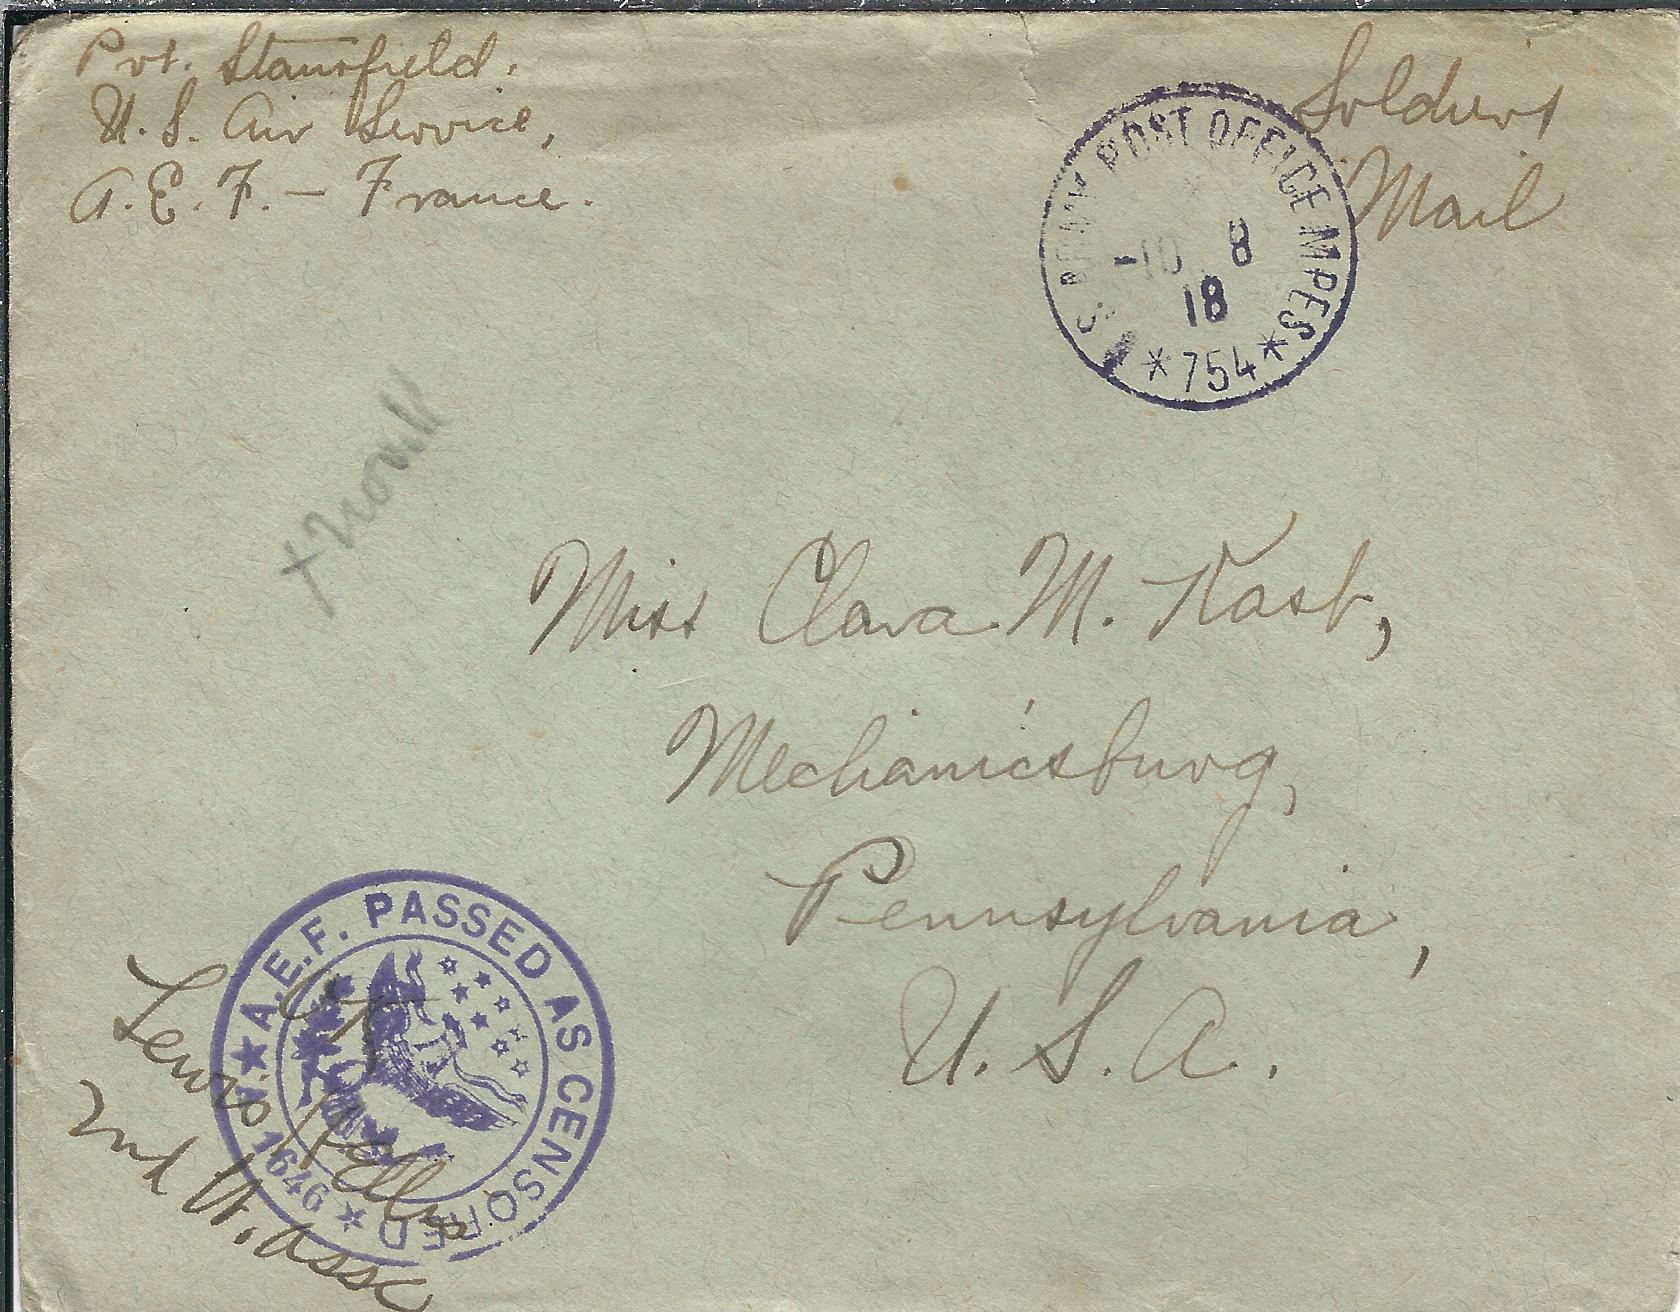 Pvt. Stansfield.
U.S. Air Service,
A.E.F. — France.
Soldier's
Mail
U.S. ARMY POST OFFICE M.P.E.S.
-10 8
18
* 754 *
Miss Clara M. Kast,
Mechanicsburg,
Pennsylvania,
U.S.A.
A.E.F. PASSED AS CENSORED
1646
OK
Lewis
2nd Lt. ASSC